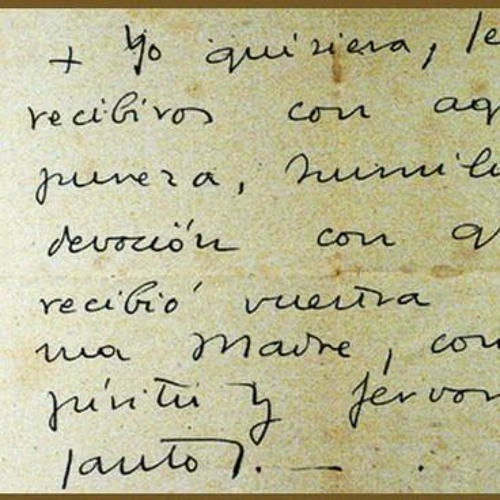 + Yo quisiera, Se
recibiros con aq
pureza, humil
devoción con q
recibió vuestra
ma Madre, con
píritu y fervor
santos.—.